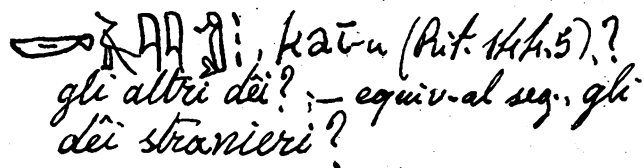 kāī-u (Rit. 144.5)?
gli altri dêi? ;— equiv. al seg., gli
dêi stranieri?